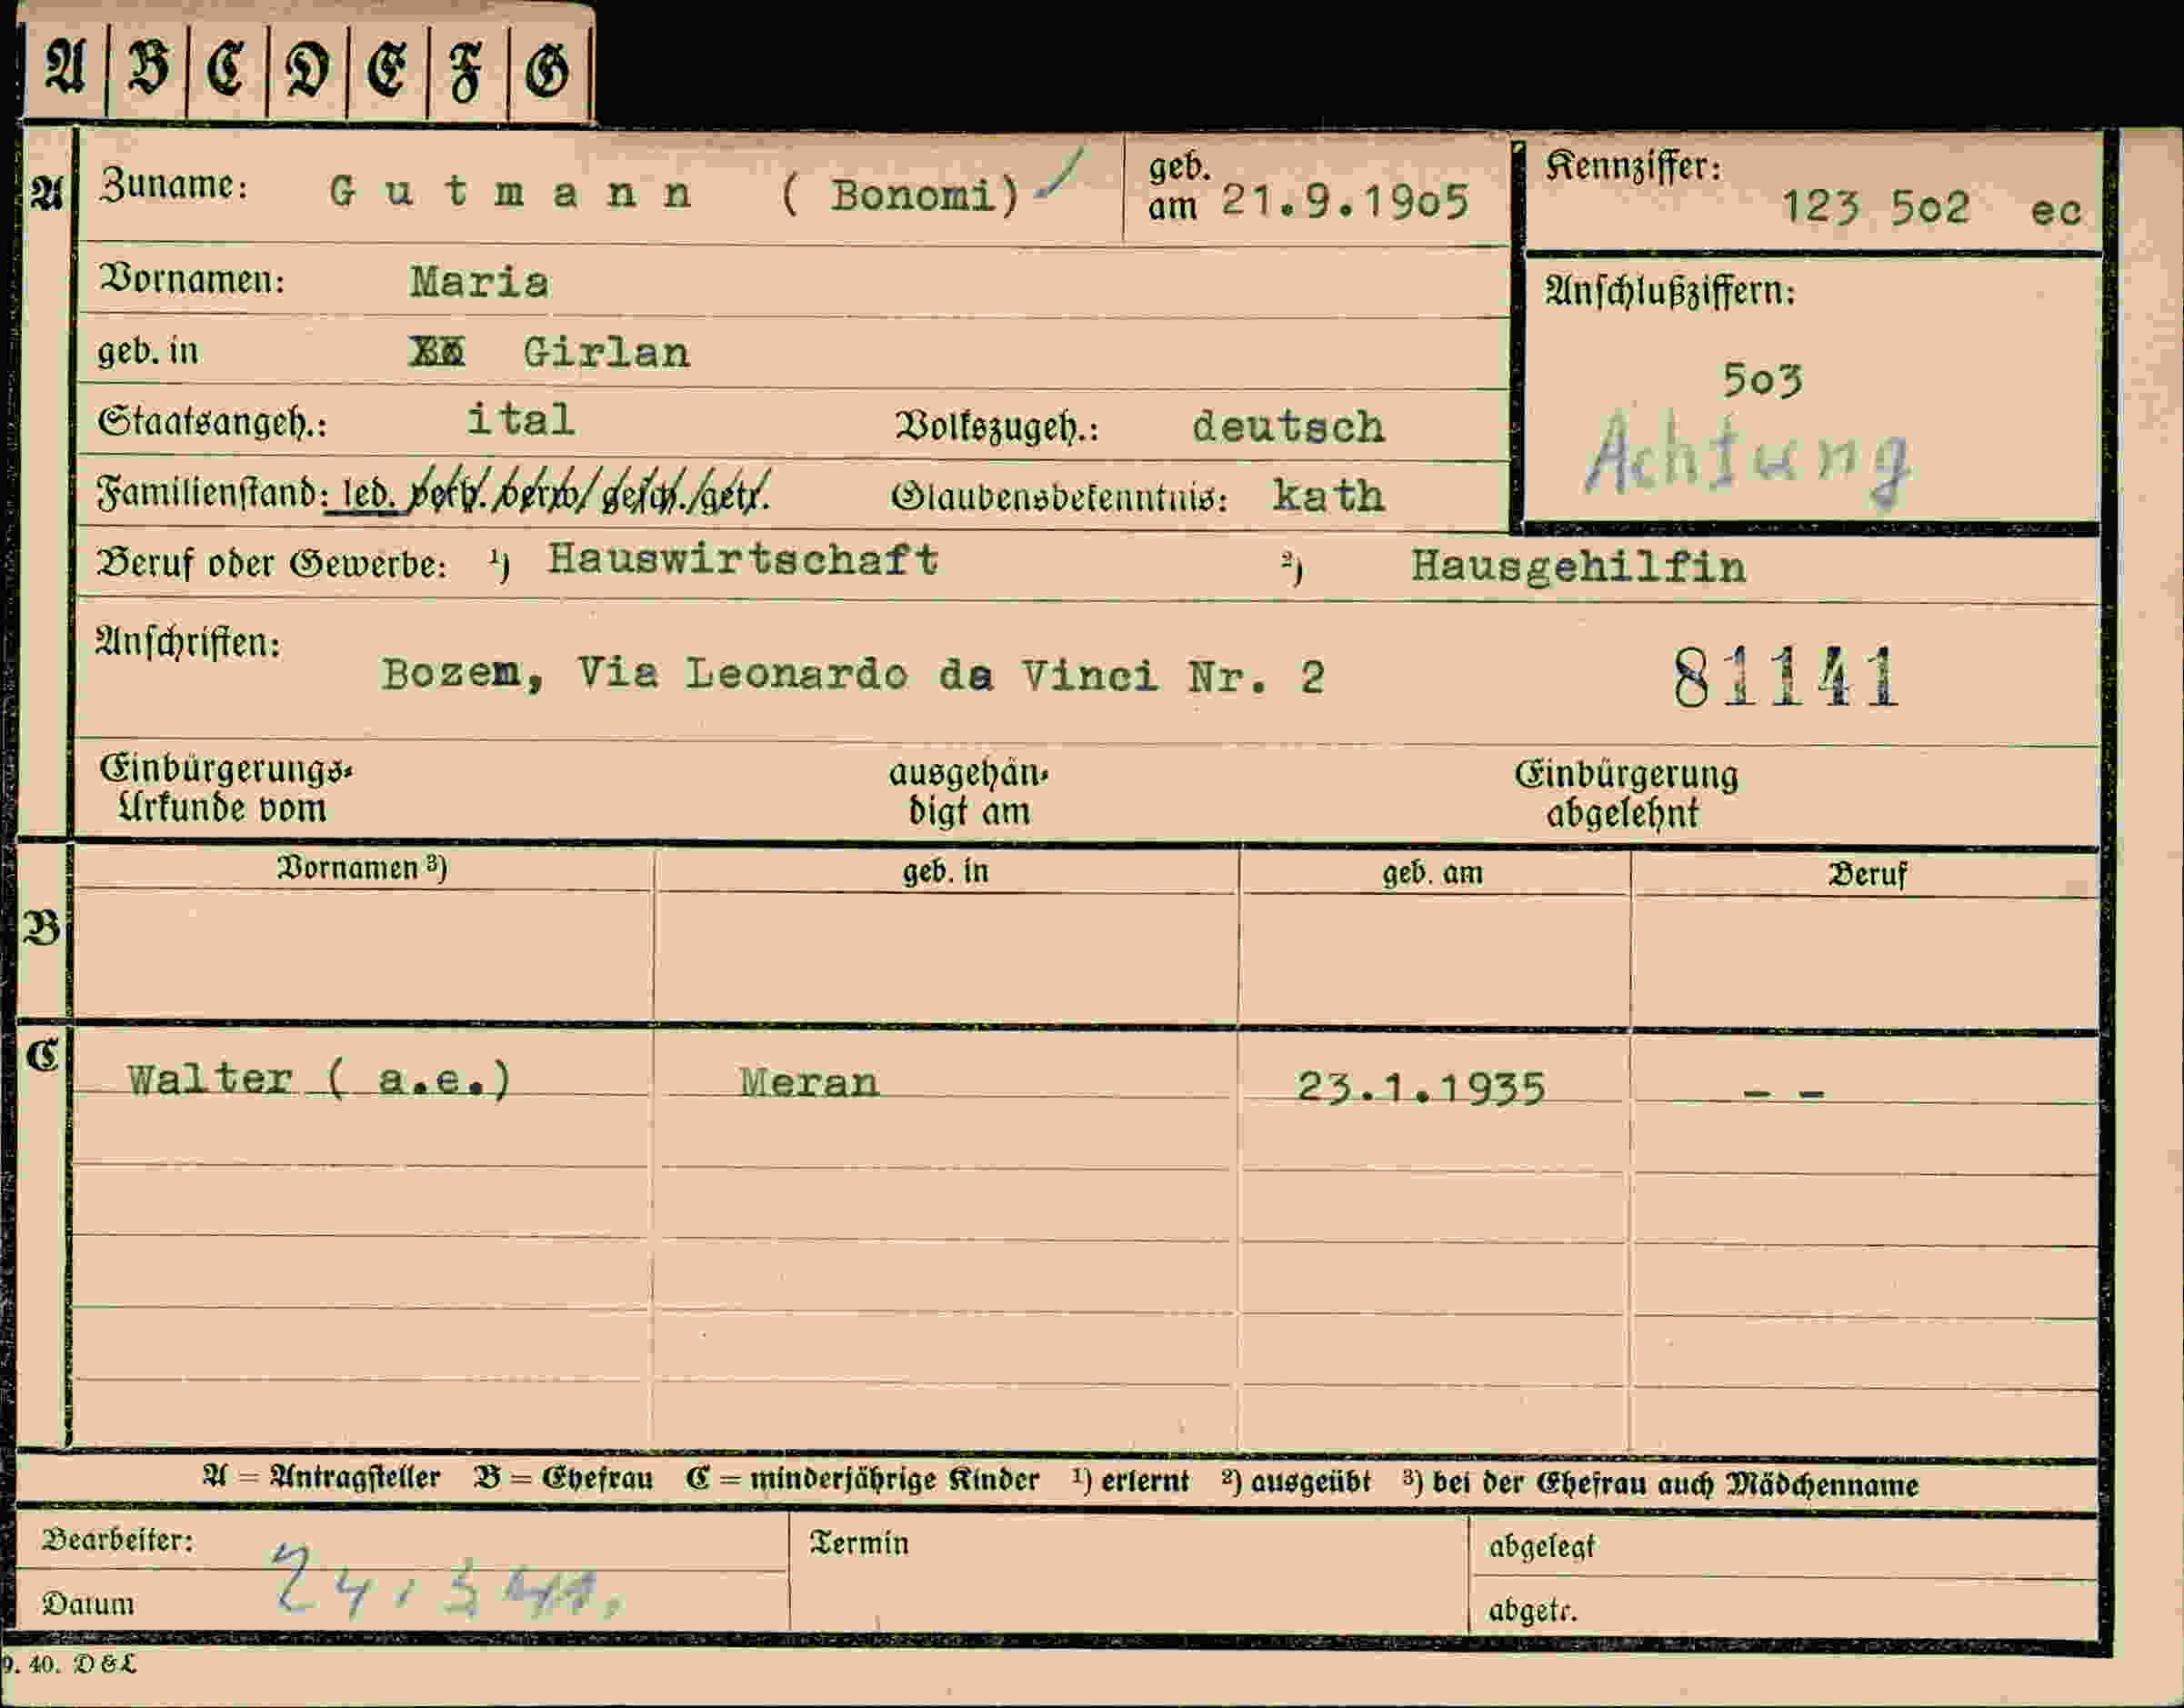 A B C D E F G
A Zuname: Gutmann ( Bonomi) geb. am 21.9.1905 Kennziffer: 123 502 ec
Vornamen: Maria
Anschlußziffern:
geb. in Girlan
503
Staatsangeh.: ital Volkszugeh.: deutsch
Achtung
Familienstand: led. verh./verw./gesch./getr. Glaubensbekenntnis: kath
Beruf oder Gewerbe: ¹) Hauswirtschaft ²) Hausgehilfin
Anschriften:
Bozen, Via Leonardo da Vinci Nr. 2 81141
Einbürgerungs- ausgehän- Einbürgerung
Urkunde vom digt am abgelehnt
Vornamen ³) geb. in geb. am Beruf
B
C
Walter ( a.e.) Meran 23.1.1935 - -
A = Antragsteller B = Ehefrau C = minderjährige Kinder ¹) erlernt ²) ausgeübt ³) bei der Ehefrau auch Mädchenname
Bearbeiter: Termin abgelegt
Datum abgetr.
9. 40. D & L